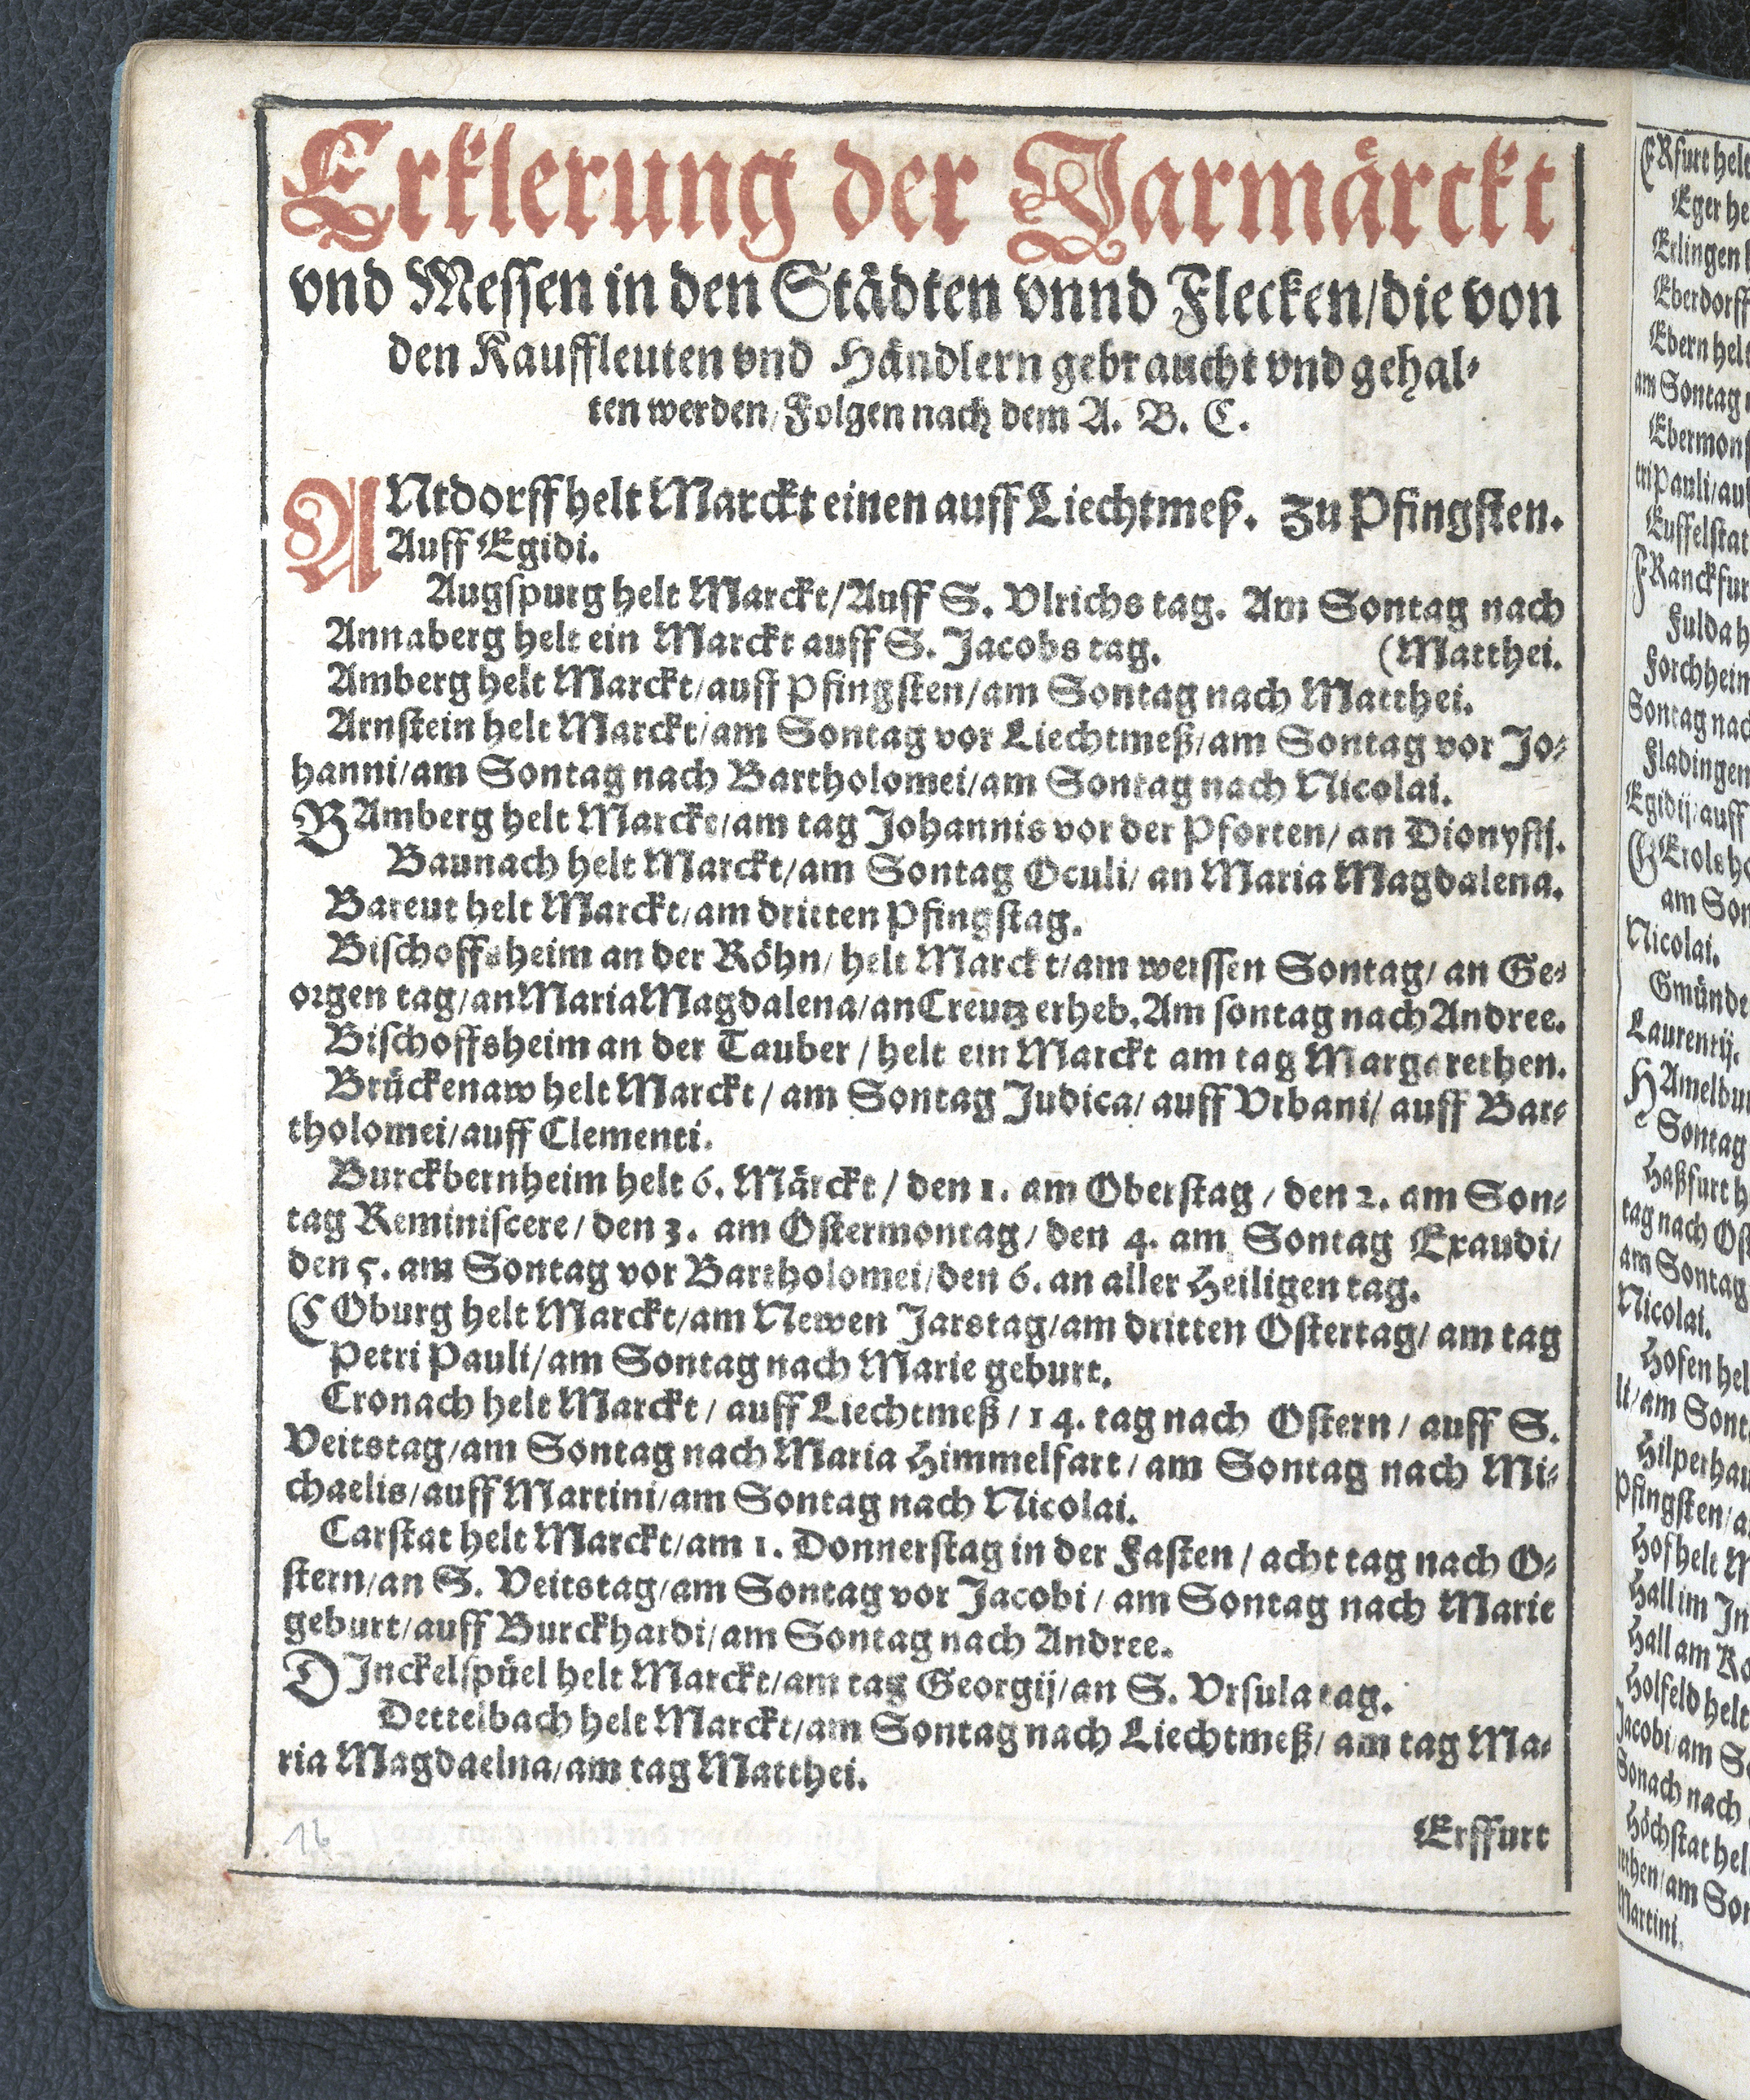 Erklerung der Jarmårckt
vnd Messen in den Städten vnnd Flecken/die von
den Kauffleuten vnd Händlern gebraucht vnd gehal⸗
ten werden/Folgen nach dem A. B. C.
ANtdorff helt Marckt einen auff Liechtmeß. Zu Pfingsten.
Auff Egidi.
Augspurg helt Marckt/Auff S. Vlrichs tag. Am Sontag nach
Annaberg helt ein Marckt auff S. Jacobs tag. (Matthei.
Amberg helt Marckt/auff Pfingsten/am Sontag nach Matthei.
Arnstein helt Marckt/am Sontag vor Liechtmeß/am Sontag vor Jo⸗
hanni/am Sontag nach Bartholomei/am Sontag nach Nicolai.
BAmberg helt Marckt/am tag Johannis vor der Pforten/ an Dionysij.
Baunach helt Marckt/am Sontag Oculi/ an Maria Magdalena.
Bareut helt Marckt/am dritten Pfingstag.
Bischoffsheim an der Röhn/ helt Marckt/am weissen Sontag/ an Ge⸗
orgen tag/an Maria Magdalena/an Creutz erheb. Am sontag nach Andree.
Bischoffsheim an der Tauber / helt ein Marckt am tag Margarethen.
Brückenaw helt Marckt / am Sontag Judica/ auff Vrbani/ auff Bar⸗
tholomei/auff Clementi.
Burckbernheim helt 6. Märckt / den 1. am Oberstag / den 2. am Son⸗
tag Reminiscere / den 3. am Ostermontag / den 4. am Sontag Exaudi/
den 5. am Sontag vor Bartholomei/den 6. an aller Heiligen tag.
COburg helt Marckt/am Newen Jarstag/am dritten Ostertag/ am tag
Petri Pauli/am Sontag nach Marie geburt.
Cronach helt Marckt / auff Liechtmeß / 14. tag nach Ostern / auff S.
Veitstag/am Sontag nach Maria Himmelfart / am Sontag nach Mi⸗
chaelis/auff Martini/am Sontag nach Nicolai.
Carstat helt Marckt/am 1. Donnerstag in der Fasten / acht tag nach O⸗
stern/an S. Veitstag/am Sontag vor Jacobi / am Sontag nach Marie
geburt/auff Burckhardi/am Sontag nach Andree.
DInckelspüel helt Marckt/am tag Georgij/an S. Vrsula tag.
Dettelbach helt Marckt/am Sontag nach Liechtmeß/ am tag Ma⸗
ria Magdaelna/am tag Matthei.
Erffurt
16
ERfurt helt
Eger he
Erlingen
Eberdorff
Ebern helt
am Sontag
Ebermons
tri Pauli/auf
Euffelstat
FRanckfur
Fulda h
Forchhein
Sontag nac
Fladingen
Egidij/auff
GErolsho
am Son
Nicolai.
Gmünde
Laurentij.
HAmelbur
Sontag
Haßfurt h
tag nach Ost
am Sontag
Nicolai.
Hofen hel
li/am Sont
Hilperhau
Pfingsten/a
Hof helt M
Hall im In
Hall am Ko
Holfeld helt
Jacobi/am So
Sonach nach
Höchstat hel
rethen/am Son
Martini.